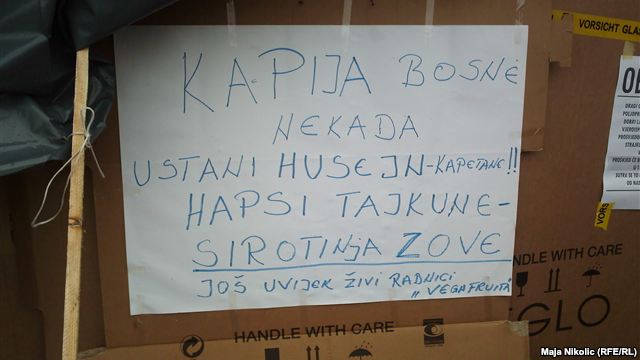 KAPIJA BOSNE
NEKADA
USTANI HUSEJN-KAPETANE!!
HAPSI TAJKUNE-
SIROTINJA ZOVE
JOŠ UVIJEK ŽIVI RADNICI
„VEGAFRUITA"
VORSICHT GLAS
VORSICHT
HANDLE WITH CARE
HANDLE WITH CARE
GLO
Maja Nikolic (RFE/RL)